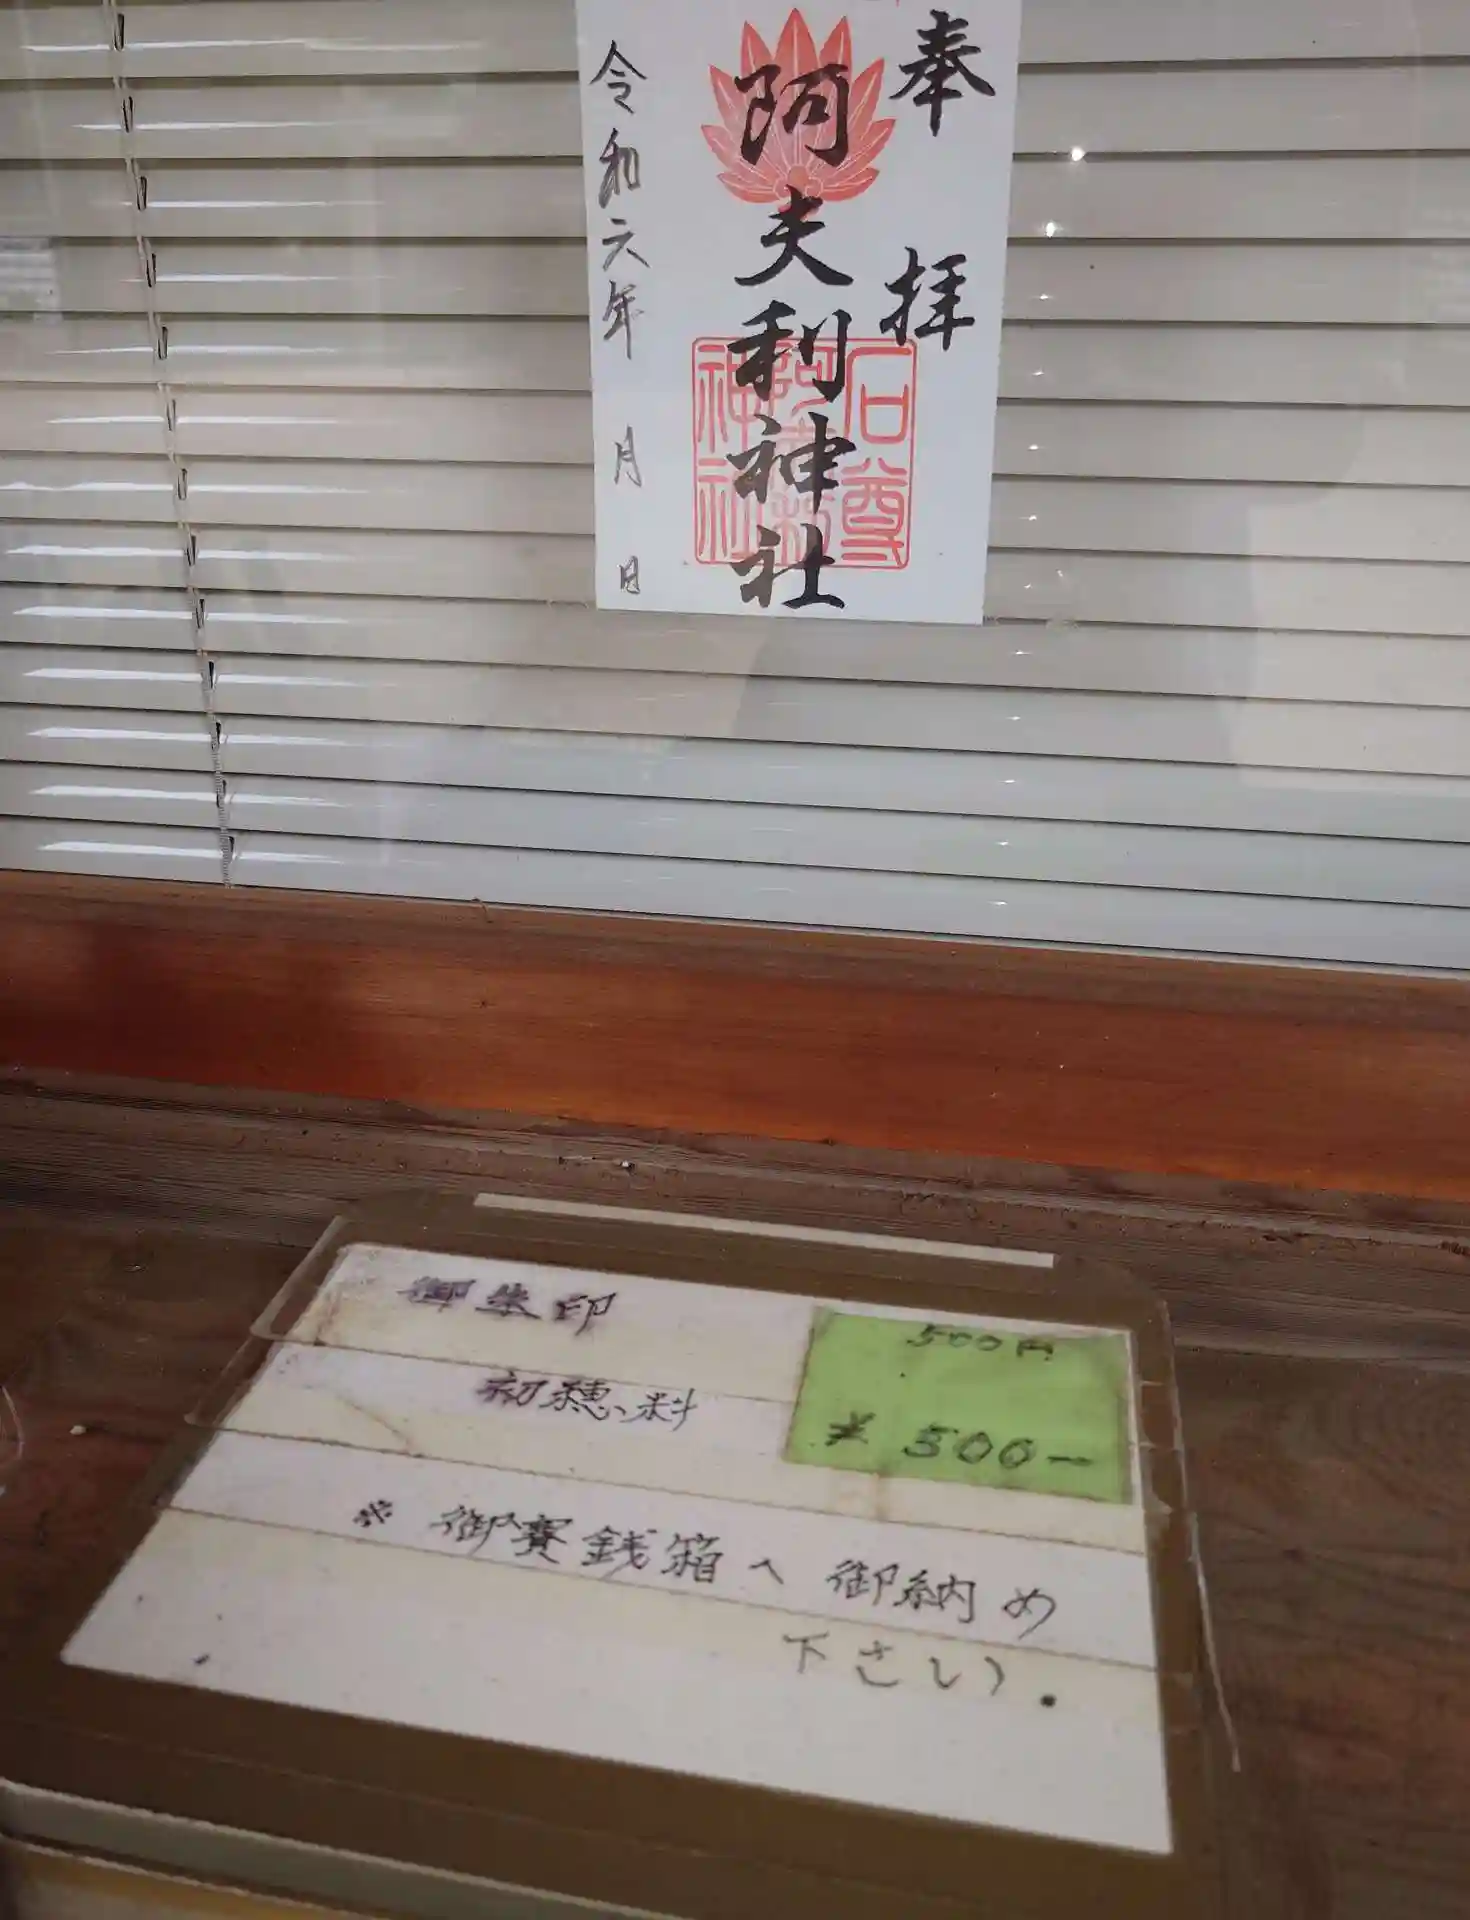 奉拝
阿夫利神社
石尊
神社
令和六年 月 日
御朱印
500円
初穂料
¥500ー
※御賽銭箱へ御納め
下さい.